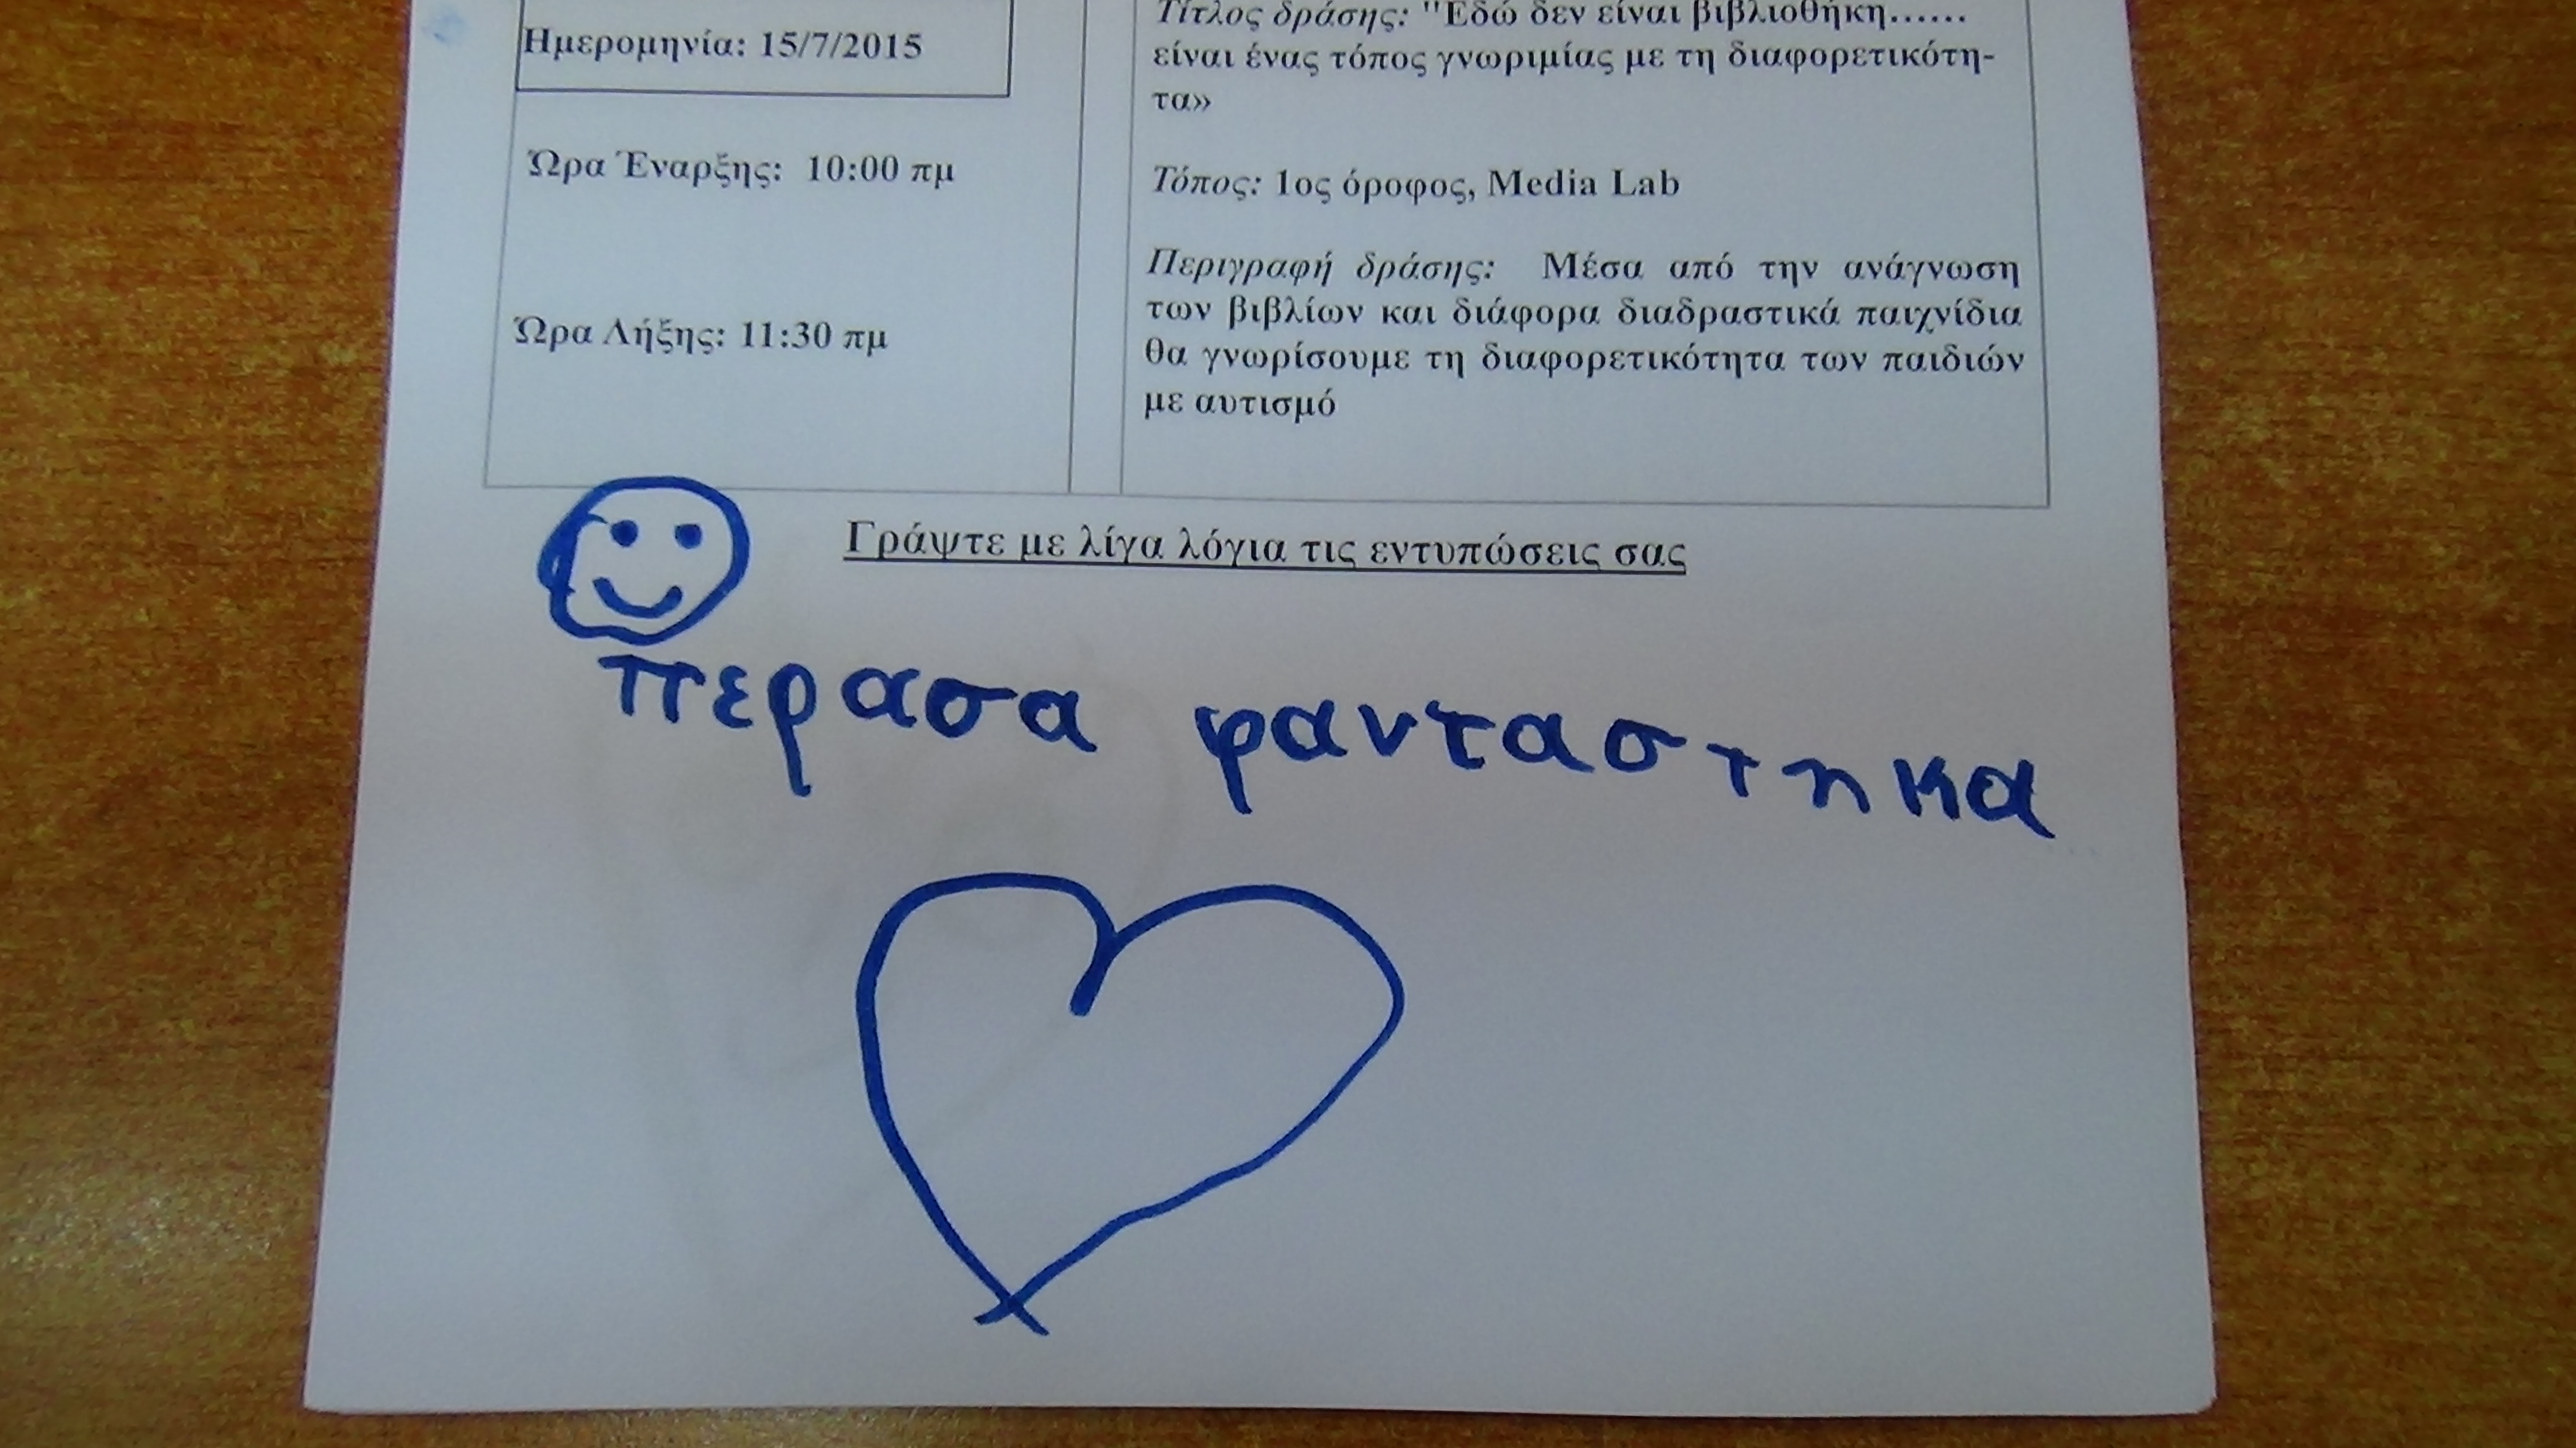 Ημερομηνία: 15/7/2015
Ώρα Έναρξης: 10:00 πμ
Ώρα Λήξης: 11:30 πμ
Τίτλος δράσης: "Εδώ δεν είναι βιβλιοθήκη……
είναι ένας τόπος γνωριμίας με τη διαφορετικότη-
τα»
Τόπος: 1ος όροφος, Media Lab
Περιγραφή δράσης: Μέσα από την ανάγνωση
των βιβλίων και διάφορα διαδραστικά παιχνίδια
θα γνωρίσουμε τη διαφορετικότητα των παιδιών
με αυτισμό
Γράψτε με λίγα λόγια τις εντυπώσεις σας
περασα φανταστηκα